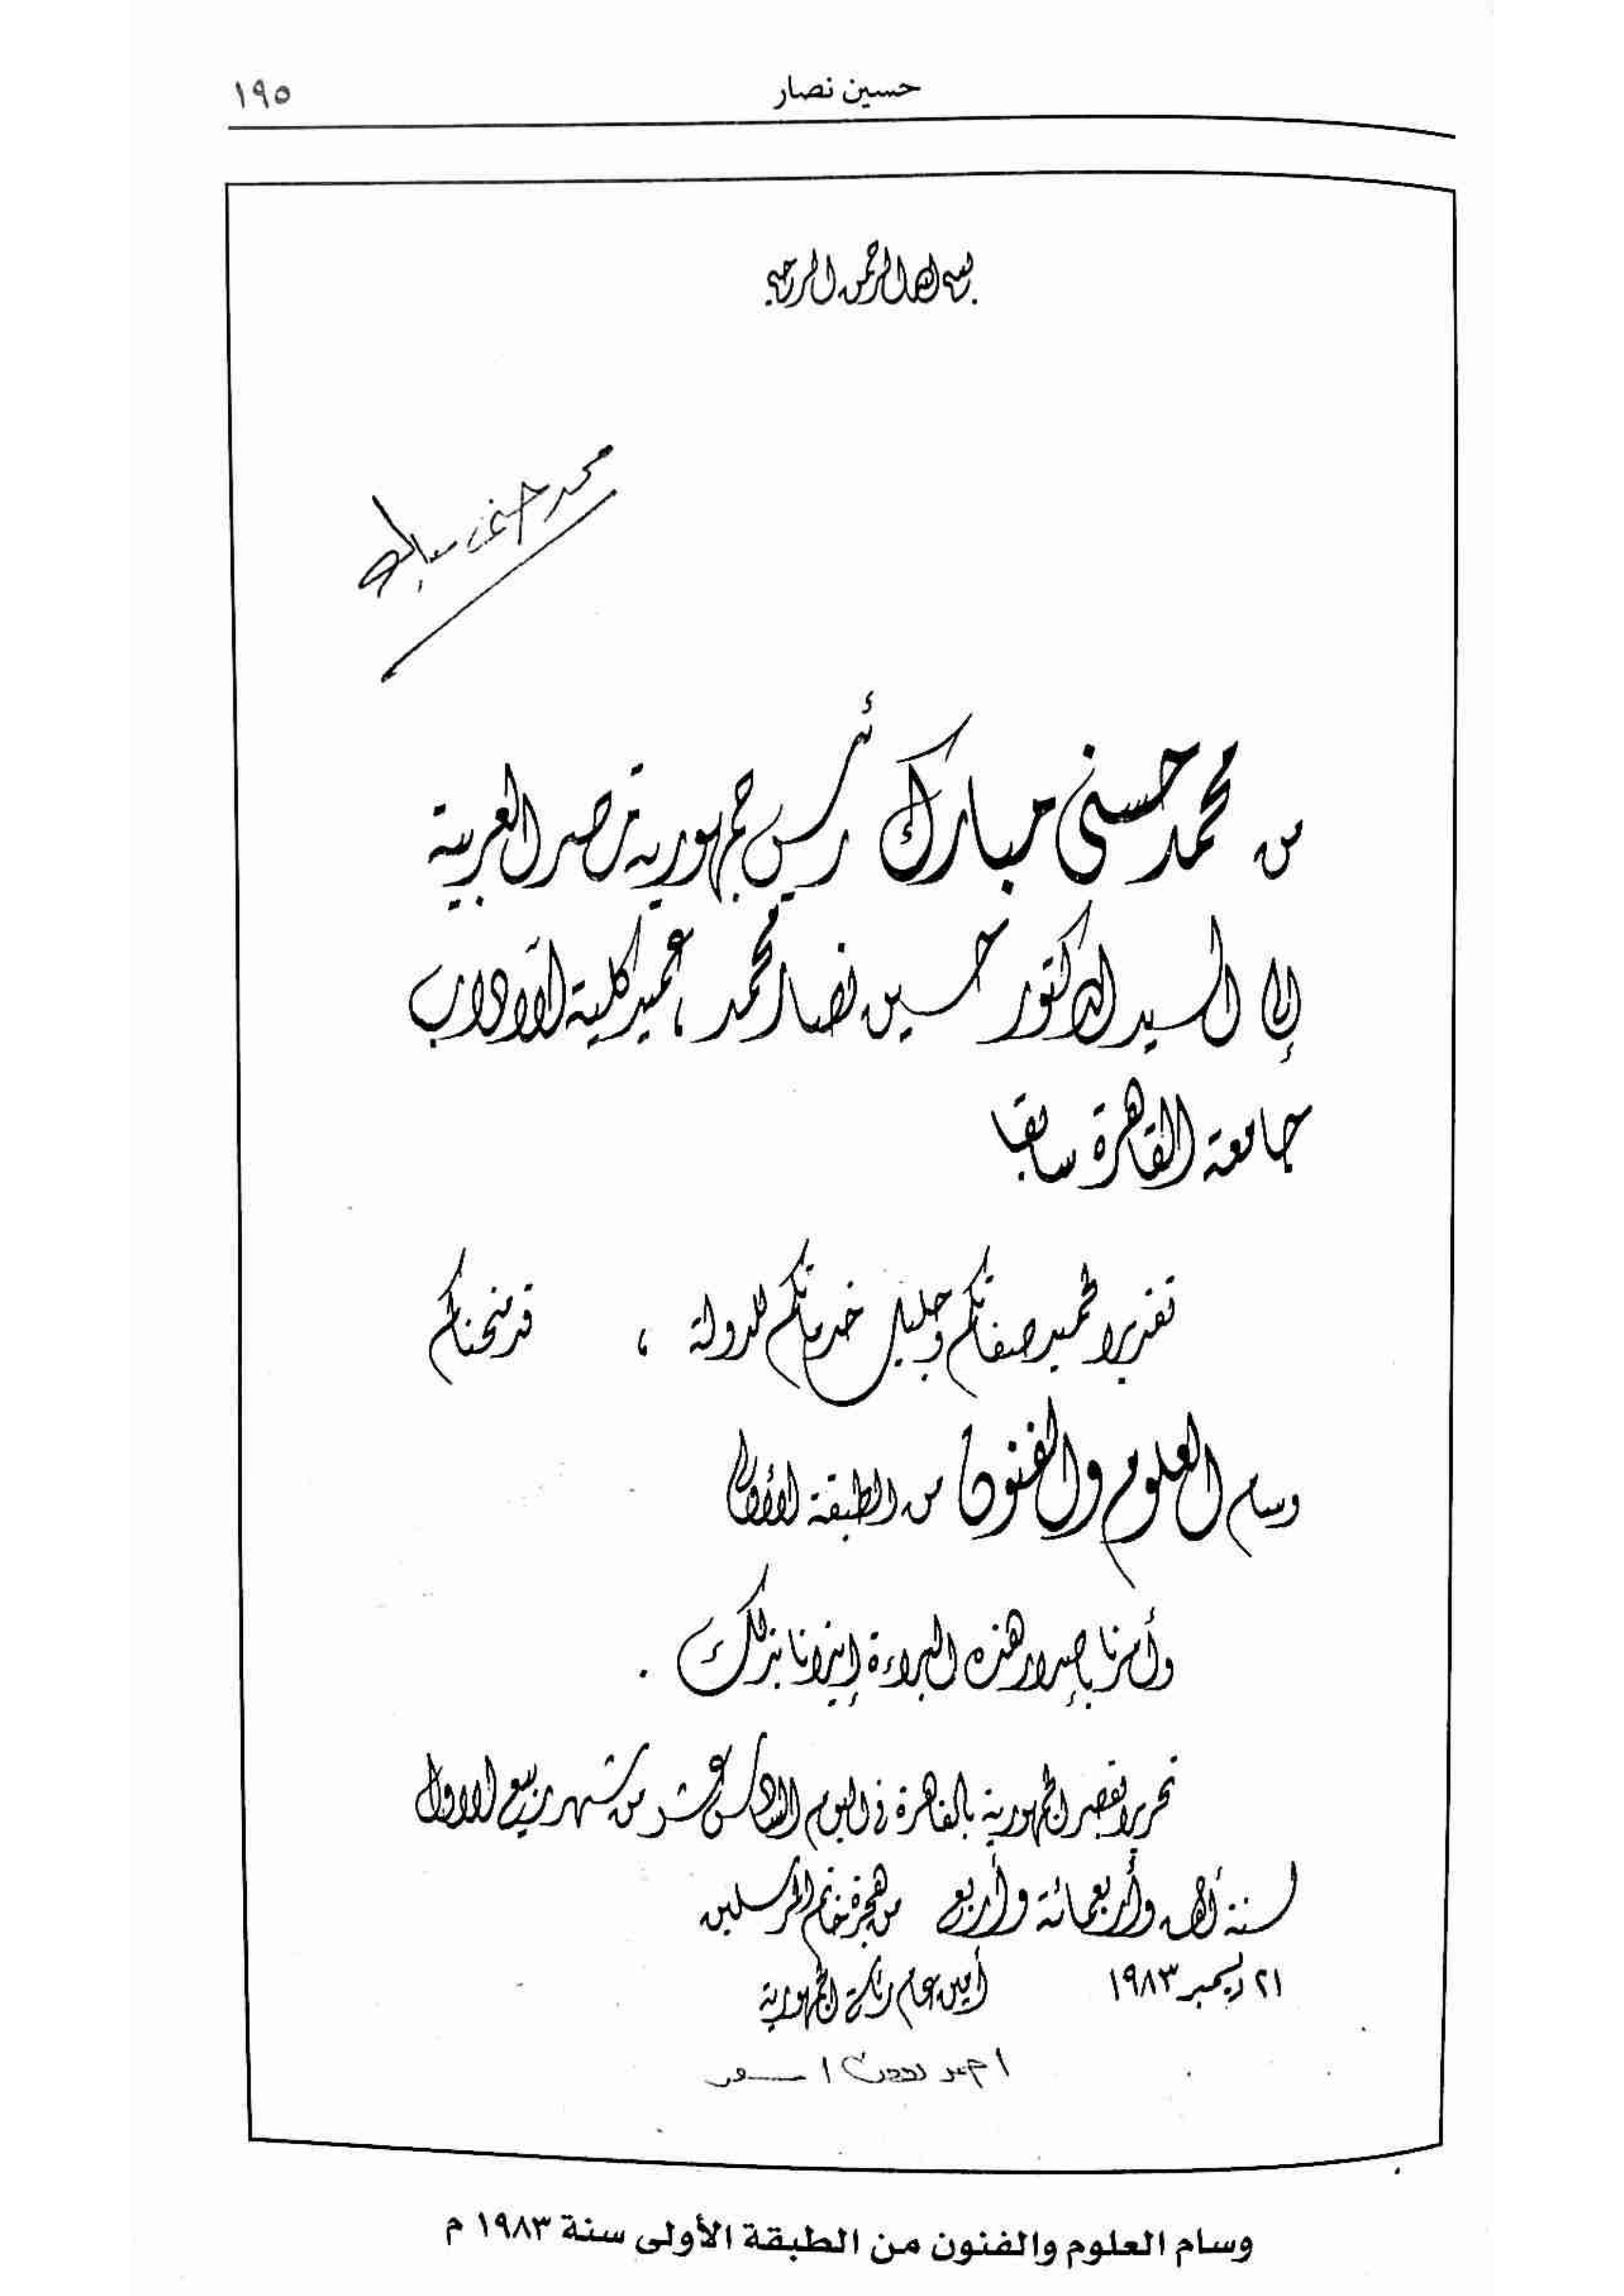 حسين نصار
١٩٥
بسم الله الرحمن الرحيم
محمد حسنى مبارك
من محمد حسنى مبارك رئيس جمهورية مصر العربية
إلى السيد الدكتور حسين نصار محمد ، عميد كلية الآداب
جامعة القاهرة سابقا
تقديرا لحميد صفاتكم وجليل خدماتكم للدولة ، قد منحناكم
وسام العلوم والفنون من الطبقة الأولى
وأمرنا بإصدار هذه البراءة إيذانا بذلك .
تحريرا بقصر الجمهورية بالقاهرة فى اليوم السادس عشر من شهر ربيع الاول
لسنة ألف وأربعمائة وأربع من هجرة خاتم المرسلين
٢١ ديسمبر ١٩٨٣
أمين عام رئاسة الجمهورية
احمد
وسام العلوم والفنون من الطبقة الأولى سنة ١٩٨٣ م